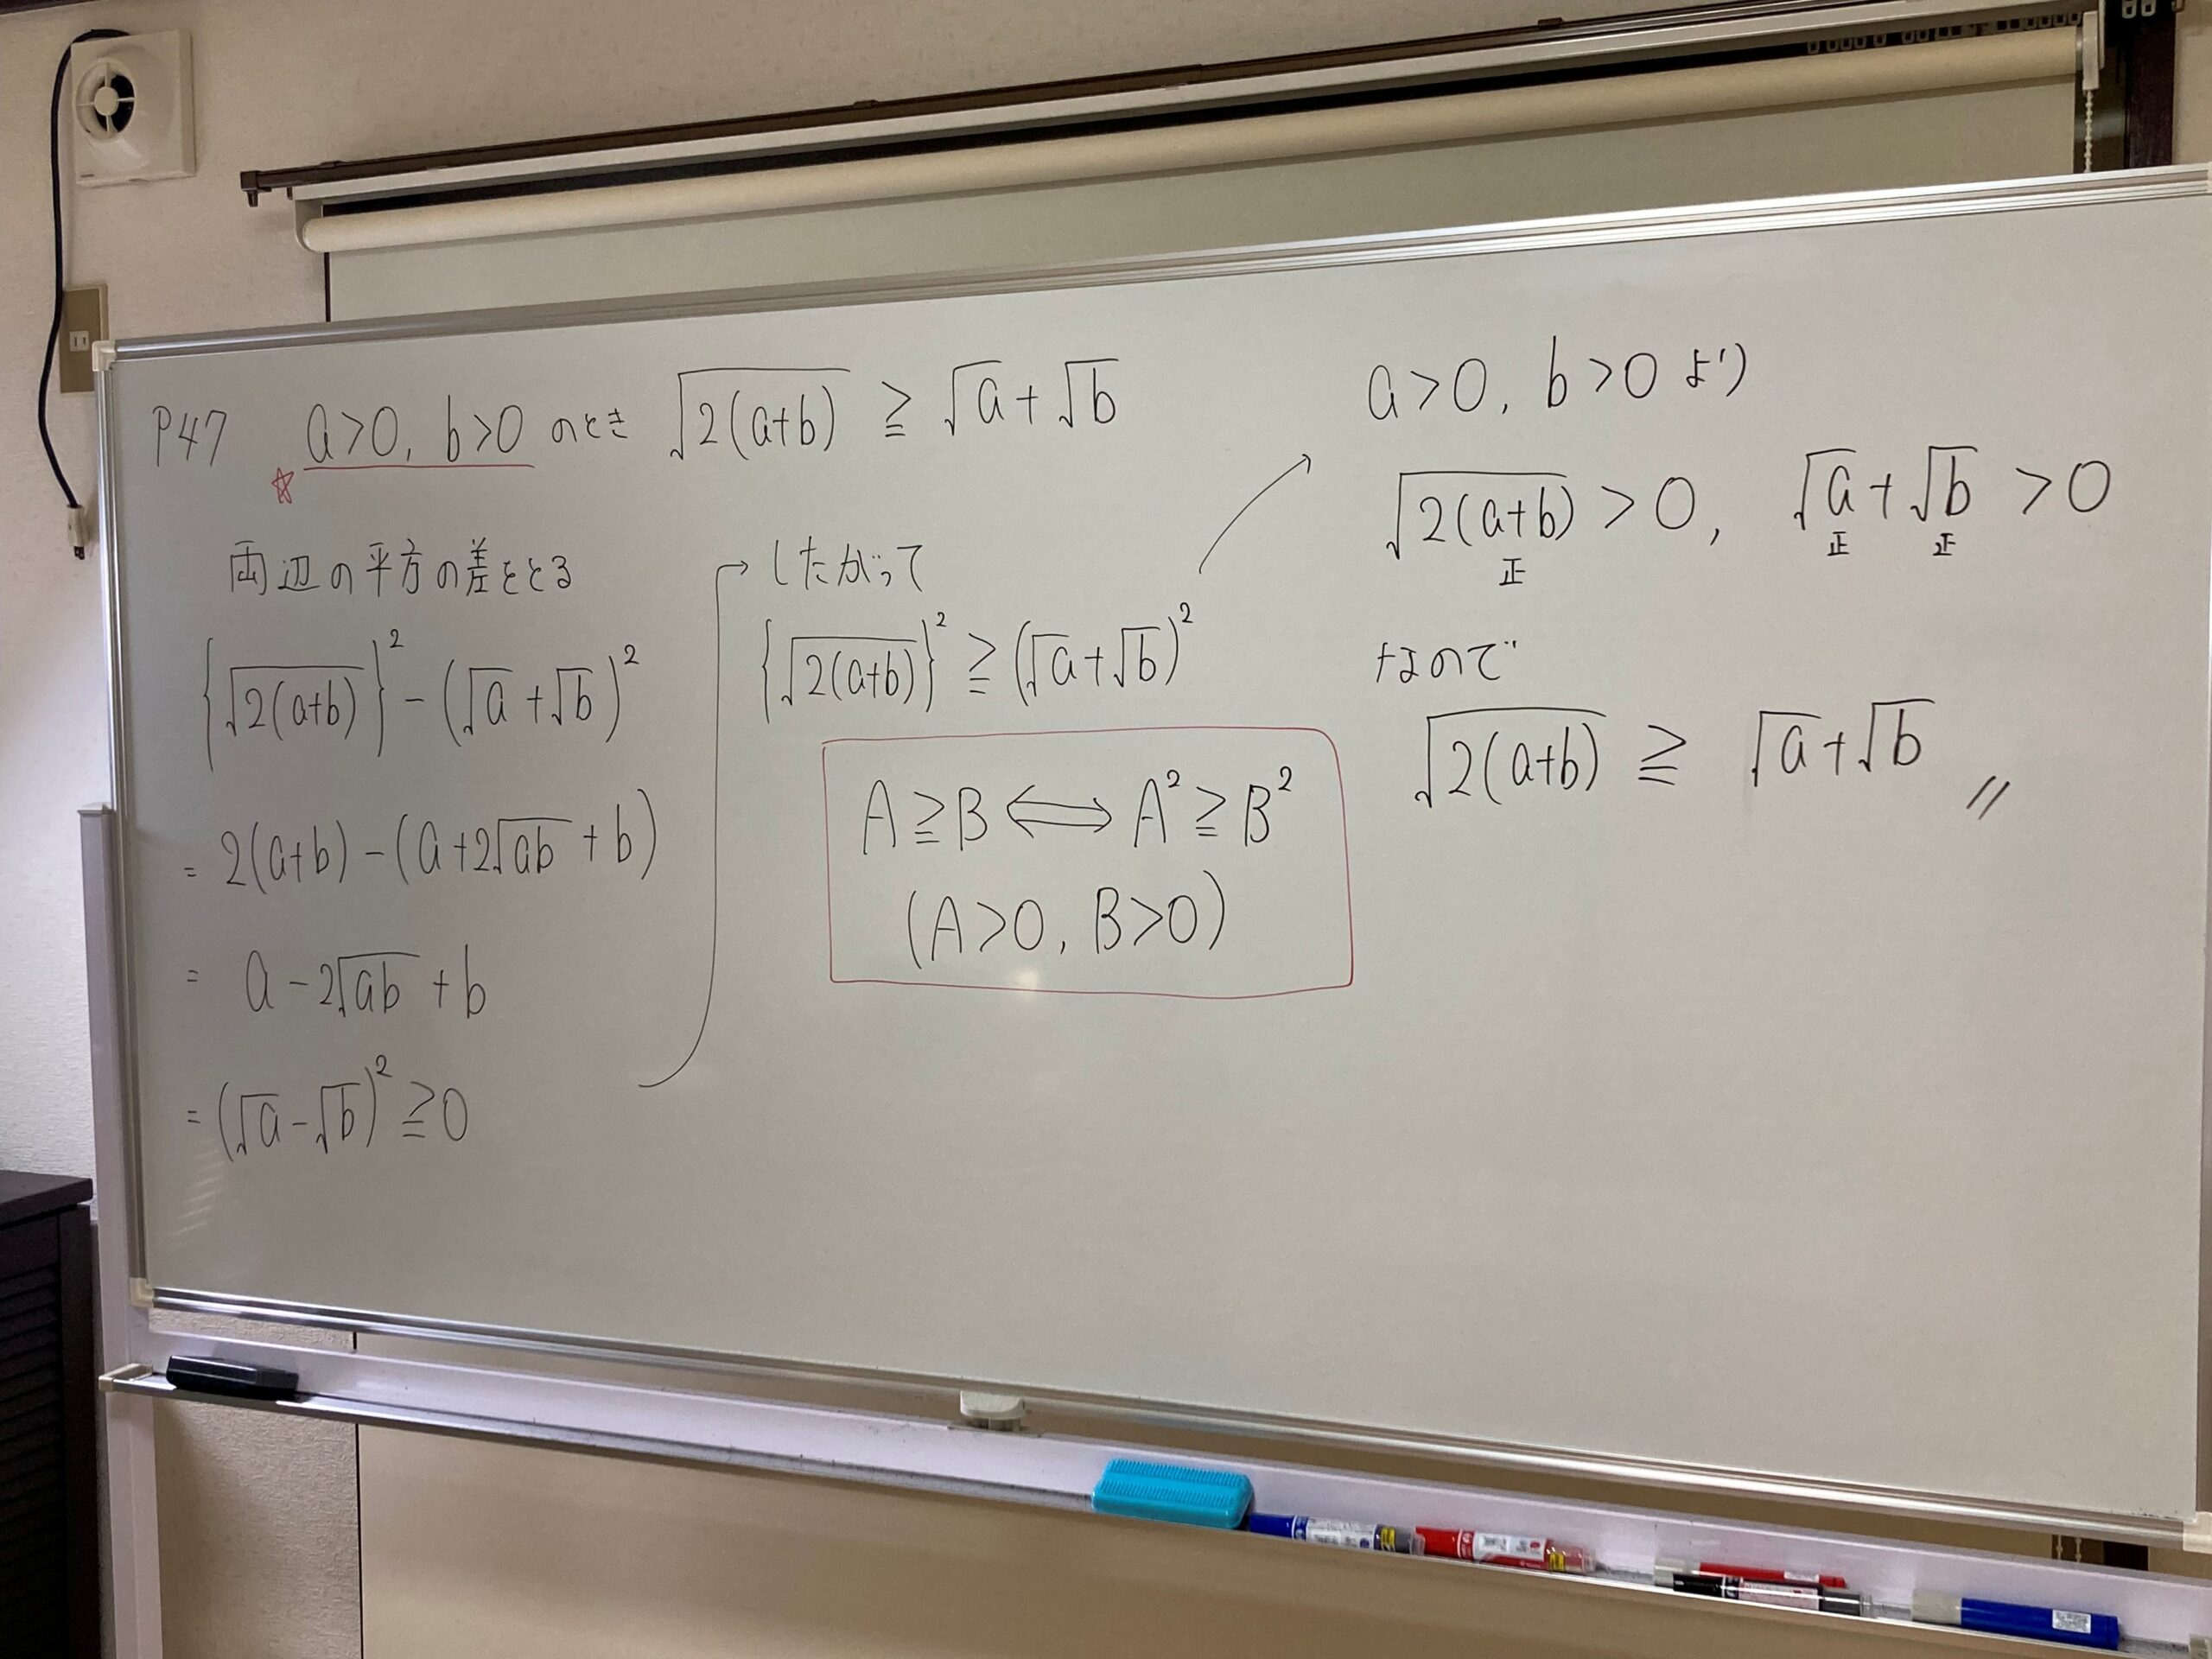 P47 a>0, b>0 のとき √2(a+b) ≧ √a+√b
両辺の平方の差をとる
{√2(a+b)}² - (√a+√b)²
= 2(a+b) - (a+2√ab+b)
= a-2√ab+b
= (√a-√b)² ≧0
したがって
{√2(a+b)}² ≧ (√a+√b)²
A≧B ⟺ A²≧B²
(A>0, B>0)
a>0, b>0 より
√2(a+b) > 0, √a+√b >0
正 正 正
なので
√2(a+b) ≧ √a+√b //